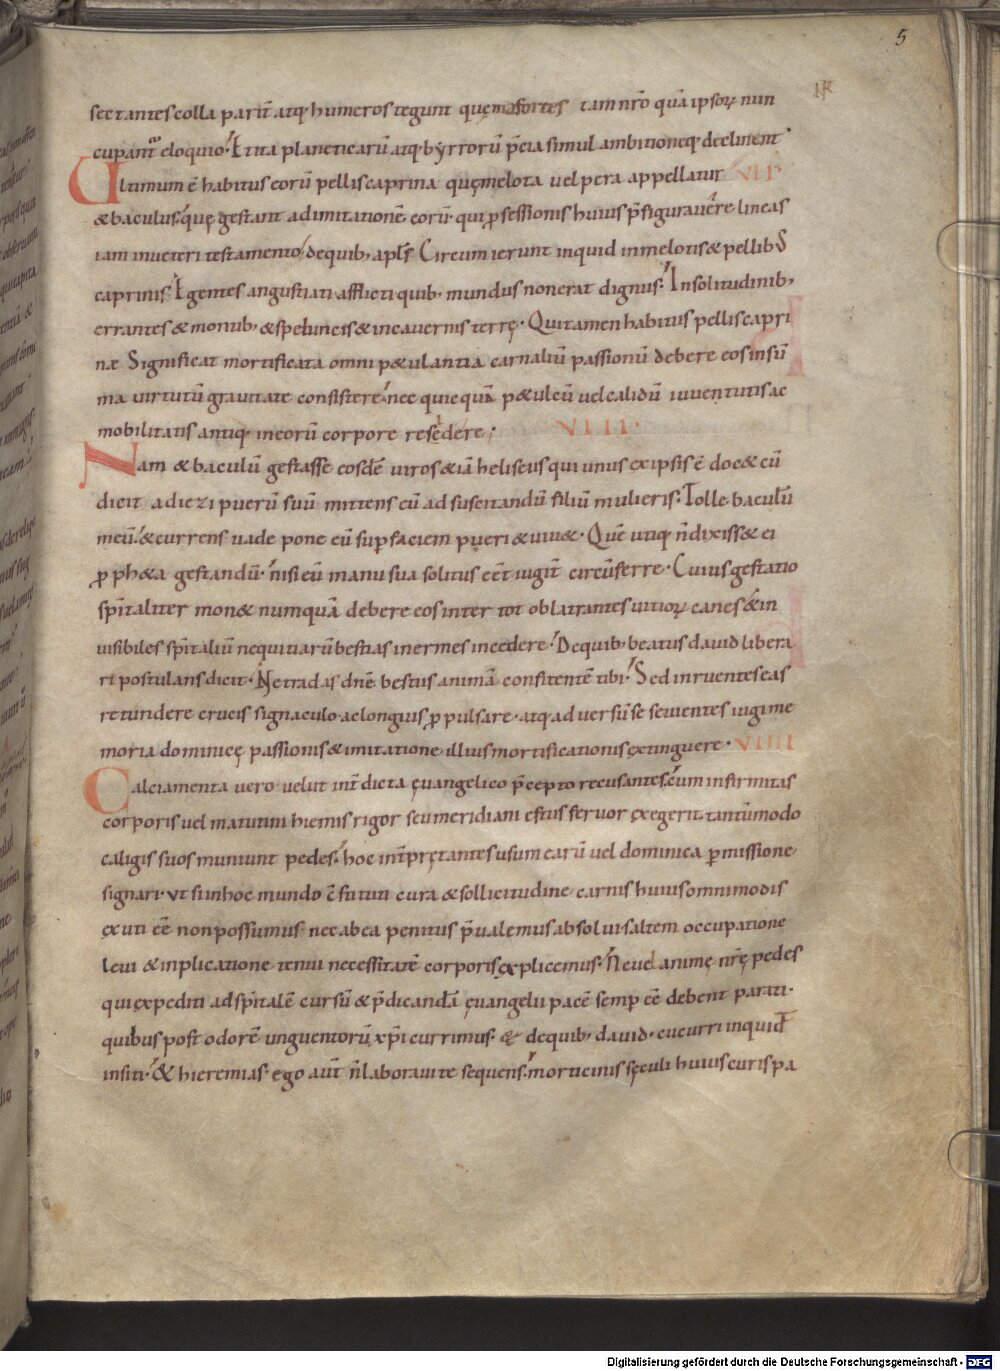 5
sectantes colla parit̄ atq; humeros tegunt quę maffortes tam nr̄o quā ipsoꝝ nun
cupant᷑ eloquio. Et ita planeticarū atq; byrrorū p̄cia simul ambitionēq; declinent.
Ultimum ē habitus eorū pellis caprina quę melota vel pera appellatur VII
& baculus. quę gestant ad imitationē eorū qui ꝓfessionis huius p̄figuravere lineas
iam in veteri testamento. de quib; apl̄s Circumierunt inquid in melotis & pellib;
caprinis. Egentes angustiati afflicti quib; mundus non erat dignus. In solitudinib;
errantes & montib; & speluncis & in cavernis terrę. Qui tamen habitus pellis capri
næ Significat mortificata omni p&ulantia carnaliū passionū debere eos in sum̄
ma virtutū gravitate consistere. nec quicquā p&ulcū vel calidū iuventutis ac
mobilitatis antiq; in eorū corpore residere; VIII.
Nam & baculū gestasse eosdē viros & iā heliseus qui unus ex ipsis ē doc& cū
dicit ad iezi puerū suū mittens eū ad suscitandū filiū mulieris. Tolle baculū
meū. & currens vade pone eū sup faciem pueri & viu&. Quē utiq; n̄ dixiss& ei
ꝓph&a gestandū. nisi eū manu sua solitus eēt iugit̄ circūferre. Cuius gestatio
sp̄italiter mon& numquā debere eos inter tot oblatrantes vitioꝝ canes & in
visibiles sp̄italiū nequitiarū bestias inermes incedere. De quib; beatus david libera
ri postulans dicit. Ne tradas dn̄e bestiis animā confitentē tibi. Sed inruentes eas
retundere crucis signaculo. ac longius ꝓpulsare. atq; adversū se sevientes iugi me
moria dominicę passionis & imitatione illius mortificationis extinguere. VIIII
Calciamenta vero velut int̄dicta ęvangelico p̄cepto recusantes. cum infirmitas
corporis vel matutini hiemis rigor seu meridiani estus fervor ęxegerit. tantūmodo
caligis suos muniunt pedes. hoc int̄prętantes usum earū vel dominica ꝑmissione
signari. ut si in hoc mundo c̄stituti cura & sollicitudine carnis huius omnimodis
ęxuti eē non possumus. nec ab ea penitus p̄valemus absolvi saltem occupatione
levi & inplicatione tenui necessitatē corporis ęxplicemus. Ne vel animę nr̄ę pedes
qui ęxpediti ad sp̄italē cursū & p̄dicandā ęvangelii pacē semp eē debent parati.
quibus post odorē unguentorū xp̄i currimus. & de quib; david. cucurri inquid
in siti. & hieremias. ego aut̄ n̄ laboravi te sequens. morticinis sęculi huius curis pa